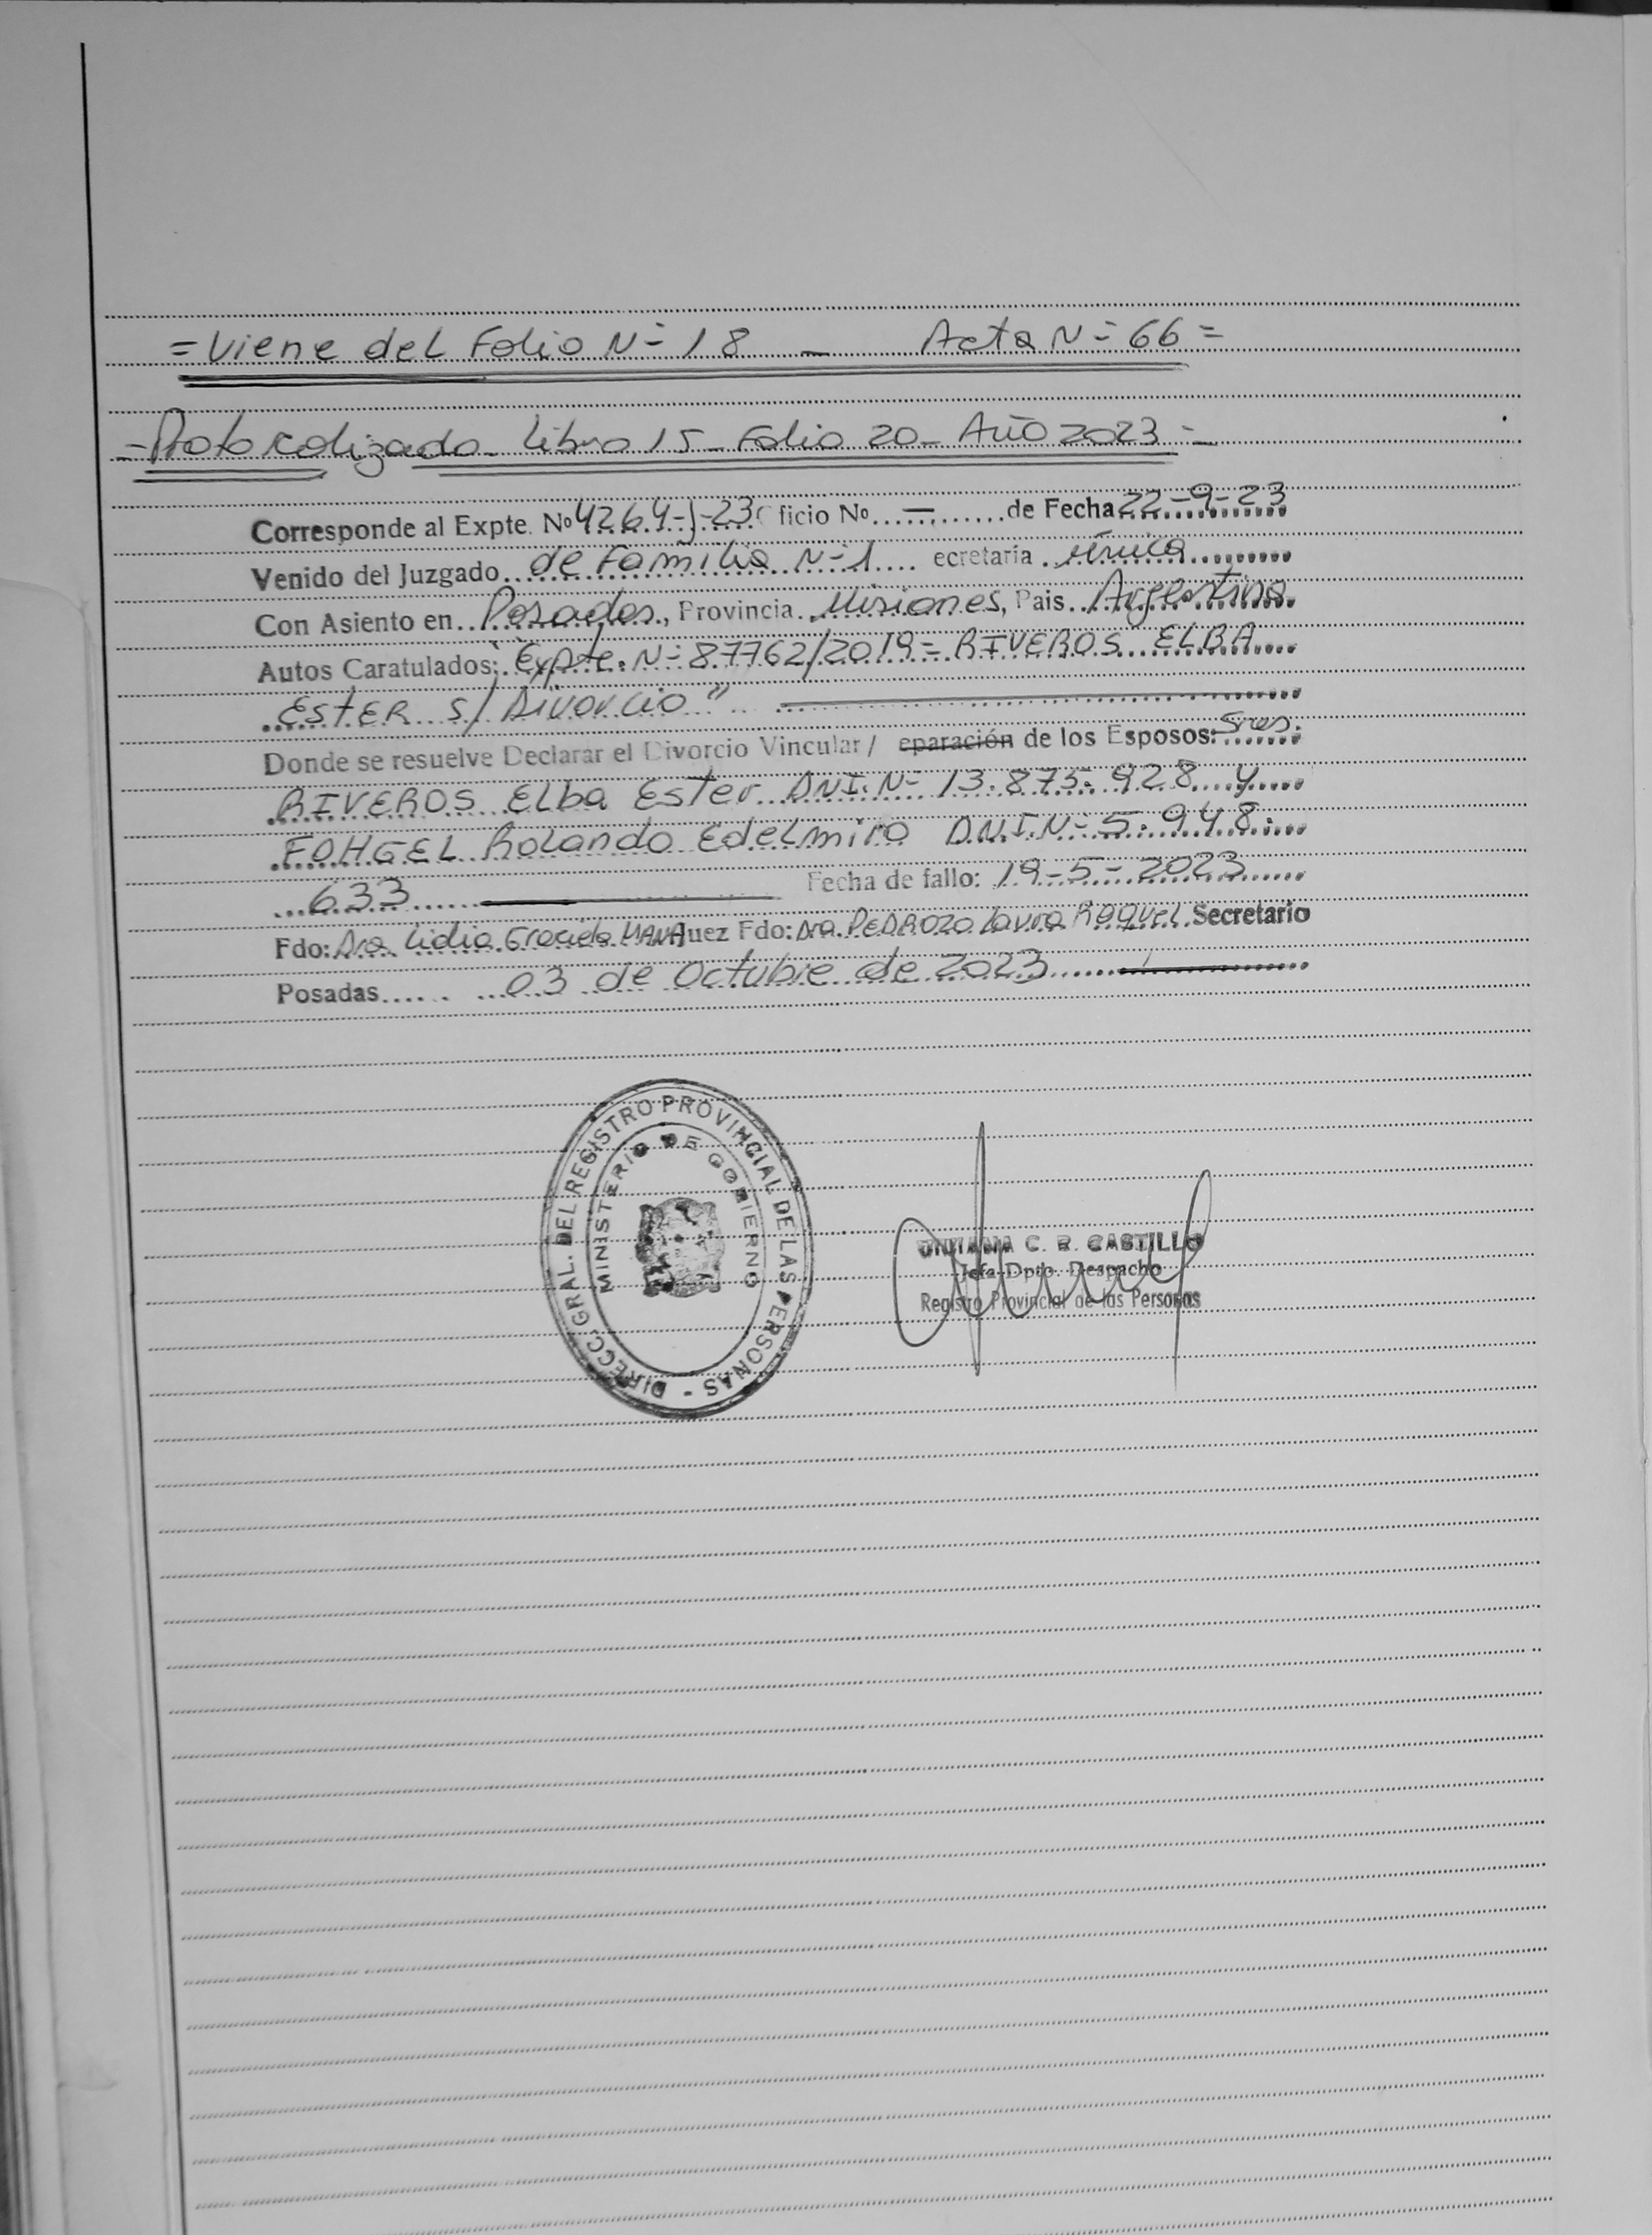 = Viene del Folio N= 18 - Acta N= 66 =
- Protocolizado - Libro 15 - Folio 20 - Año 2023 -
Corresponde al Expte. Nº 4264-J-23 ficio Nº ... — ... de Fecha 22-9-23
Venido del Juzgado de Familia N=1 ecretaría única
Con Asiento en Posadas, Provincia Misiones, Pais Argentina
Autos Caratulados: "Expte. N= 87762/2019 = RIVEROS ELBA
ESTER s/ Divorcio"
Donde se resuelve Declarar el Divorcio Vincular / eparación de los Esposos: Sres.
RIVEROS Elba Ester DNI. N= 13.875.928 y
FOHGEL Rolando Edelmiro D.N.I. N= 5.948.
633 Fecha de fallo: 19-5-2023
Fdo: Dra. Lidia Graciela uez Fdo: Dra. PEDROZO Laura Raquel Secretario
Posadas 03 de Octubre de 2023
DIRECC. GRAL. DEL REGISTRO PROVINCIAL DE LAS PERSONAS -
MINISTERIO DE GOBIERNO
C. R. CASTILLO
Jefa Dpto. Despacho
Registro Provincial de las Personas